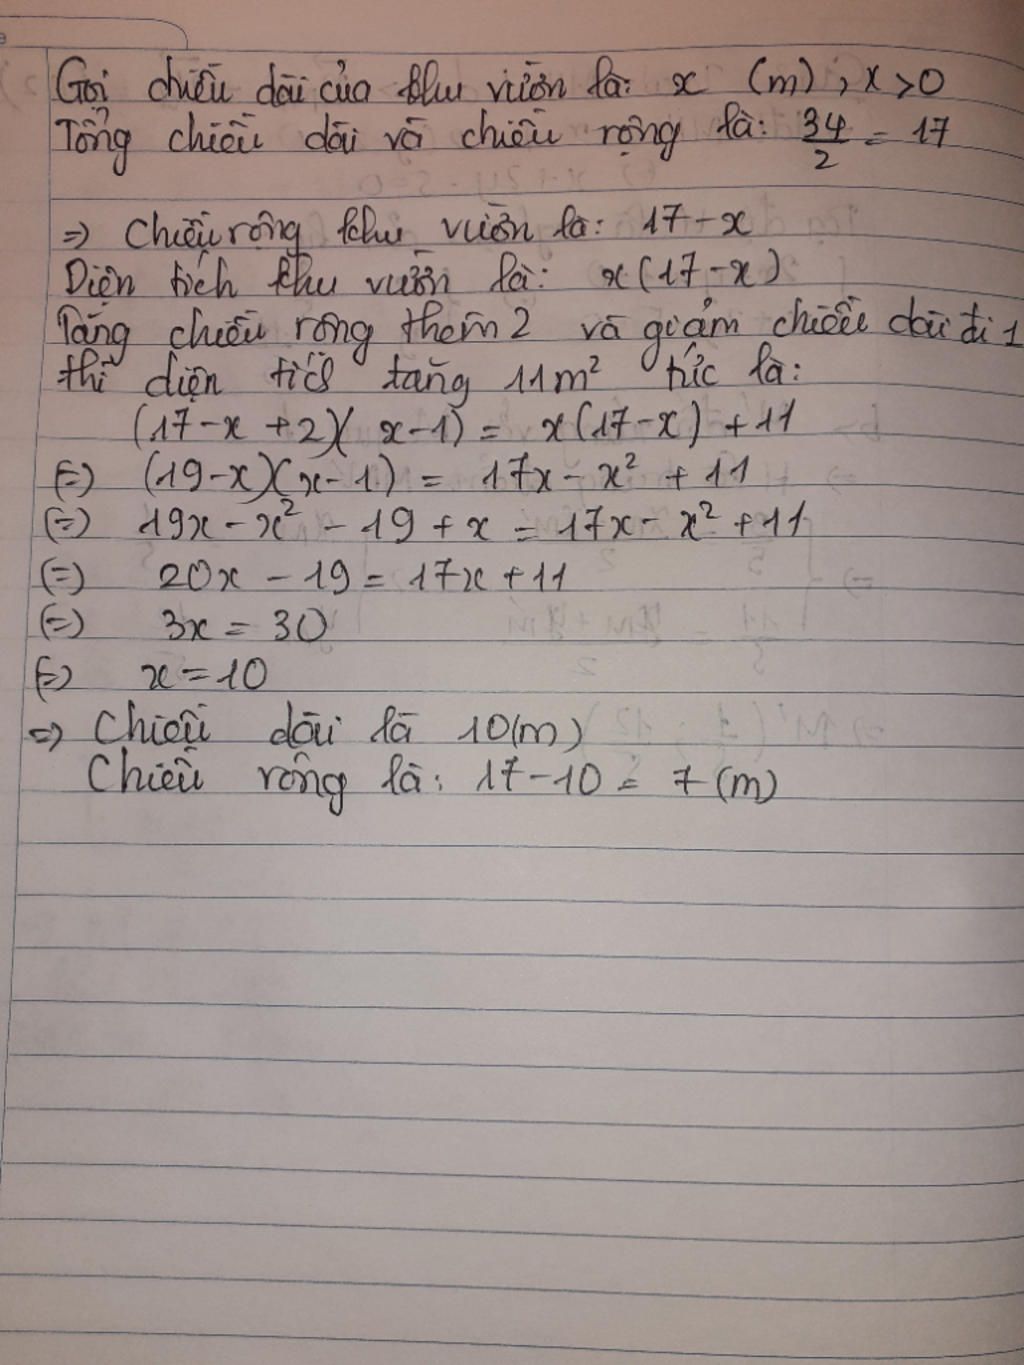 Gọi chiều dài của khu vườn là: x (m), x > 0
Tổng chiều dài và chiều rộng là: 34/2 = 17
⇒ Chiều rộng khu vườn là: 17 - x
Diện tích khu vườn là: x(17-x)
Tăng chiều rộng thêm 2 và giảm chiều dài đi 1
thì diện tích tăng 11m² tức là:
(17-x+2)(x-1) = x(17-x) + 11
(=) (19-x)(x-1) = 17x - x² + 11
(=) 19x - x² - 19 + x = 17x - x² + 11
(=) 20x - 19 = 17x + 11
(=) 3x = 30
(=) x = 10
=) Chiều dài là 10(m)
Chiều rộng là: 17-10 = 7 (m)